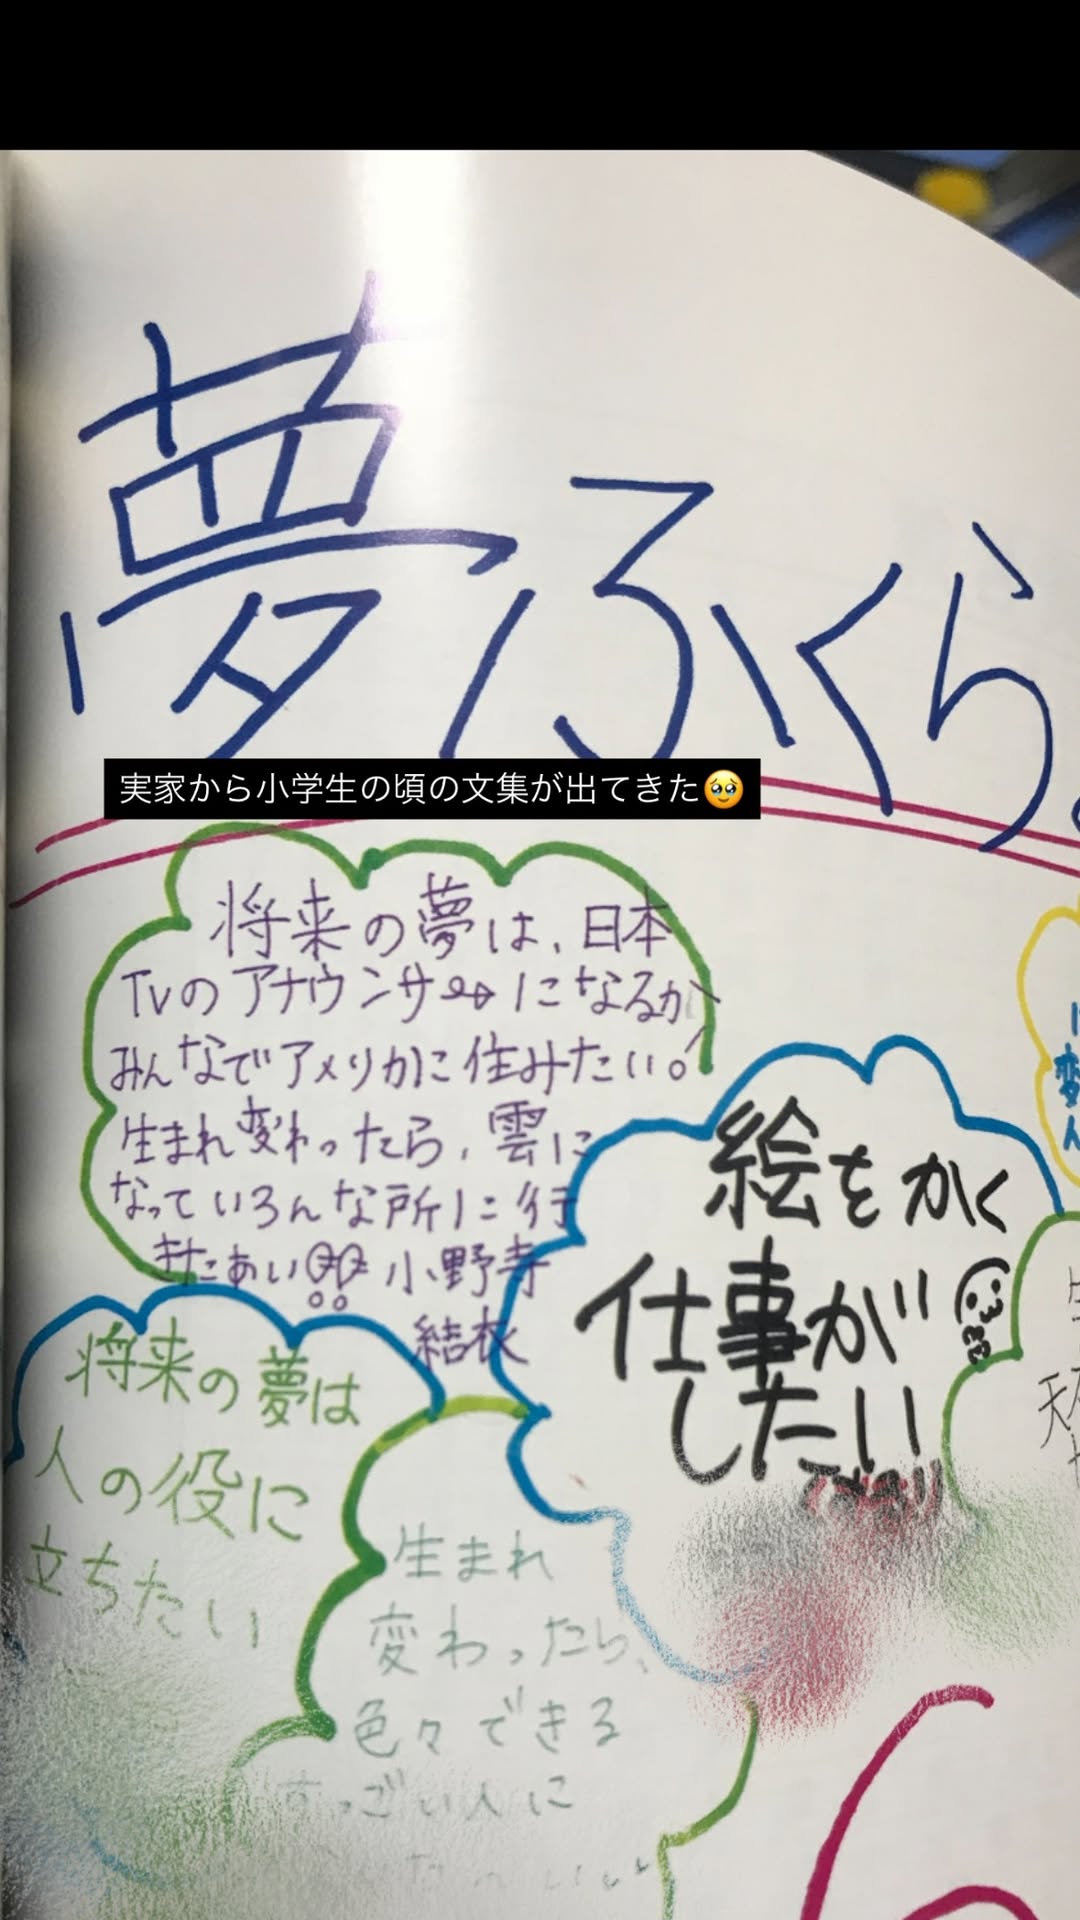 夢ふくら
実家から小学生の頃の文集が出てきた🥹
将来の夢は、日本
TVのアナウンサーになるか
みんなでアメリカに住みたい。
生まれ変わったら、雲に
なっていろんな所に行
きたぁい!! 小野寺
結衣
絵をかく
仕事が
したい
将来の夢は
人の役に
立ちたい
生まれ
変わったら、
色々できる
すっごい人に